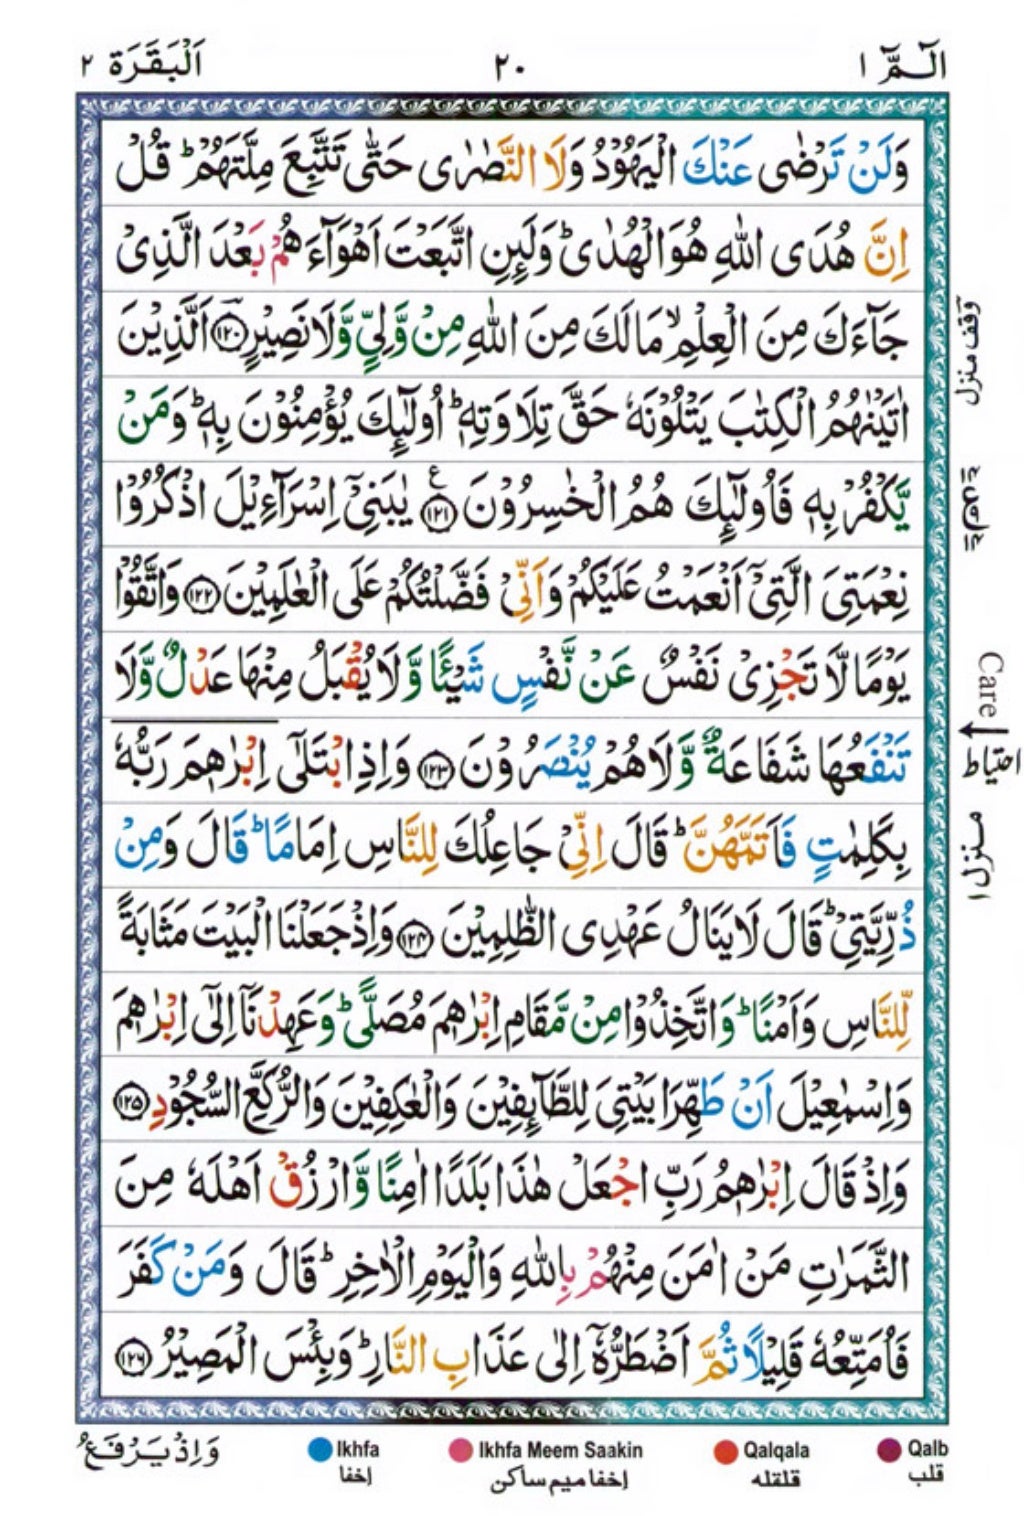 الٓمّٓ ١
٢٠
اَلْبَقَرَة ٢
وَلَنْ تَرْضٰى عَنْكَ الْيَهُوْدُ وَلَا النَّصٰرٰى حَتّٰى تَتَّبِعَ مِلَّتَهُمْ ؕ قُلْ
اِنَّ هُدَى اللّٰهِ هُوَ الْهُدٰى ؕ وَلَئِنِ اتَّبَعْتَ اَهْوَآءَهُمْ بَعْدَ الَّذِىْ
جَآءَكَ مِنَ الْعِلْمِ ۙ مَا لَكَ مِنَ اللّٰهِ مِنْ وَّلِيٍّ وَّلَا نَصِيْرٍ ﴿۱۲۰﴾ اَلَّذِيْنَ
اٰتَيْنٰهُمُ الْكِتٰبَ يَتْلُوْنَهٗ حَقَّ تِلَاوَتِهٖ ؕ اُولٰٓئِكَ يُؤْمِنُوْنَ بِهٖ ؕ وَمَنْ
يَّكْفُرْ بِهٖ فَاُولٰٓئِكَ هُمُ الْخٰسِرُوْنَ ﴿۱۲۱﴾ ع يٰبَنِىْٓ اِسْرَآءِيْلَ اذْكُرُوْا
نِعْمَتِىَ الَّتِىْٓ اَنْعَمْتُ عَلَيْكُمْ وَاَنِّىْ فَضَّلْتُكُمْ عَلَى الْعٰلَمِيْنَ ﴿۱۲۲﴾ وَاتَّقُوْا
يَوْمًا لَّا تَجْزِىْ نَفْسٌ عَنْ نَّفْسٍ شَيْـًٔا وَّلَا يُقْبَلُ مِنْهَا عَدْلٌ وَّلَا
تَنْفَعُهَا شَفَاعَةٌ وَّلَا هُمْ يُنْصَرُوْنَ ﴿۱۲۳﴾ وَاِذِ ابْتَلٰٓى اِبْرٰهٖمَ رَبُّهٗ
بِكَلِمٰتٍ فَاَتَمَّهُنَّ ؕ قَالَ اِنِّىْ جَاعِلُكَ لِلنَّاسِ اِمَامًا ؕ قَالَ وَمِنْ
ذُرِّيَّتِىْ ؕ قَالَ لَا يَنَالُ عَهْدِى الظّٰلِمِيْنَ ﴿۱۲۴﴾ وَاِذْ جَعَلْنَا الْبَيْتَ مَثَابَةً
لِّلنَّاسِ وَاَمْنًا ؕ وَاتَّخِذُوْا مِنْ مَّقَامِ اِبْرٰهٖمَ مُصَلًّى ؕ وَعَهِدْنَآ اِلٰٓى اِبْرٰهٖمَ
وَاِسْمٰعِيْلَ اَنْ طَهِّرَا بَيْتِىَ لِلطَّآئِفِيْنَ وَالْعٰكِفِيْنَ وَالرُّكَّعِ السُّجُوْدِ ﴿۱۲۵﴾
وَاِذْ قَالَ اِبْرٰهٖمُ رَبِّ اجْعَلْ هٰذَا بَلَدًا اٰمِنًا وَّارْزُقْ اَهْلَهٗ مِنَ
الثَّمَرٰتِ مَنْ اٰمَنَ مِنْهُمْ بِاللّٰهِ وَالْيَوْمِ الْاٰخِرِ ؕ قَالَ وَمَنْ كَفَرَ
فَاُمَتِّعُهٗ قَلِيْلًا ثُمَّ اَضْطَرُّهٗٓ اِلٰى عَذَابِ النَّارِ ؕ وَبِئْسَ الْمَصِيْرُ ﴿۱۲۶﴾
وقف منزل
Care
احتیاط
منزل ١
وَاِذْ يَرْفَعُ
Ikhfa
إخفا
Ikhfa Meem Saakin
إخفا میم ساکن
Qalqala
قلقله
Qalb
قلب